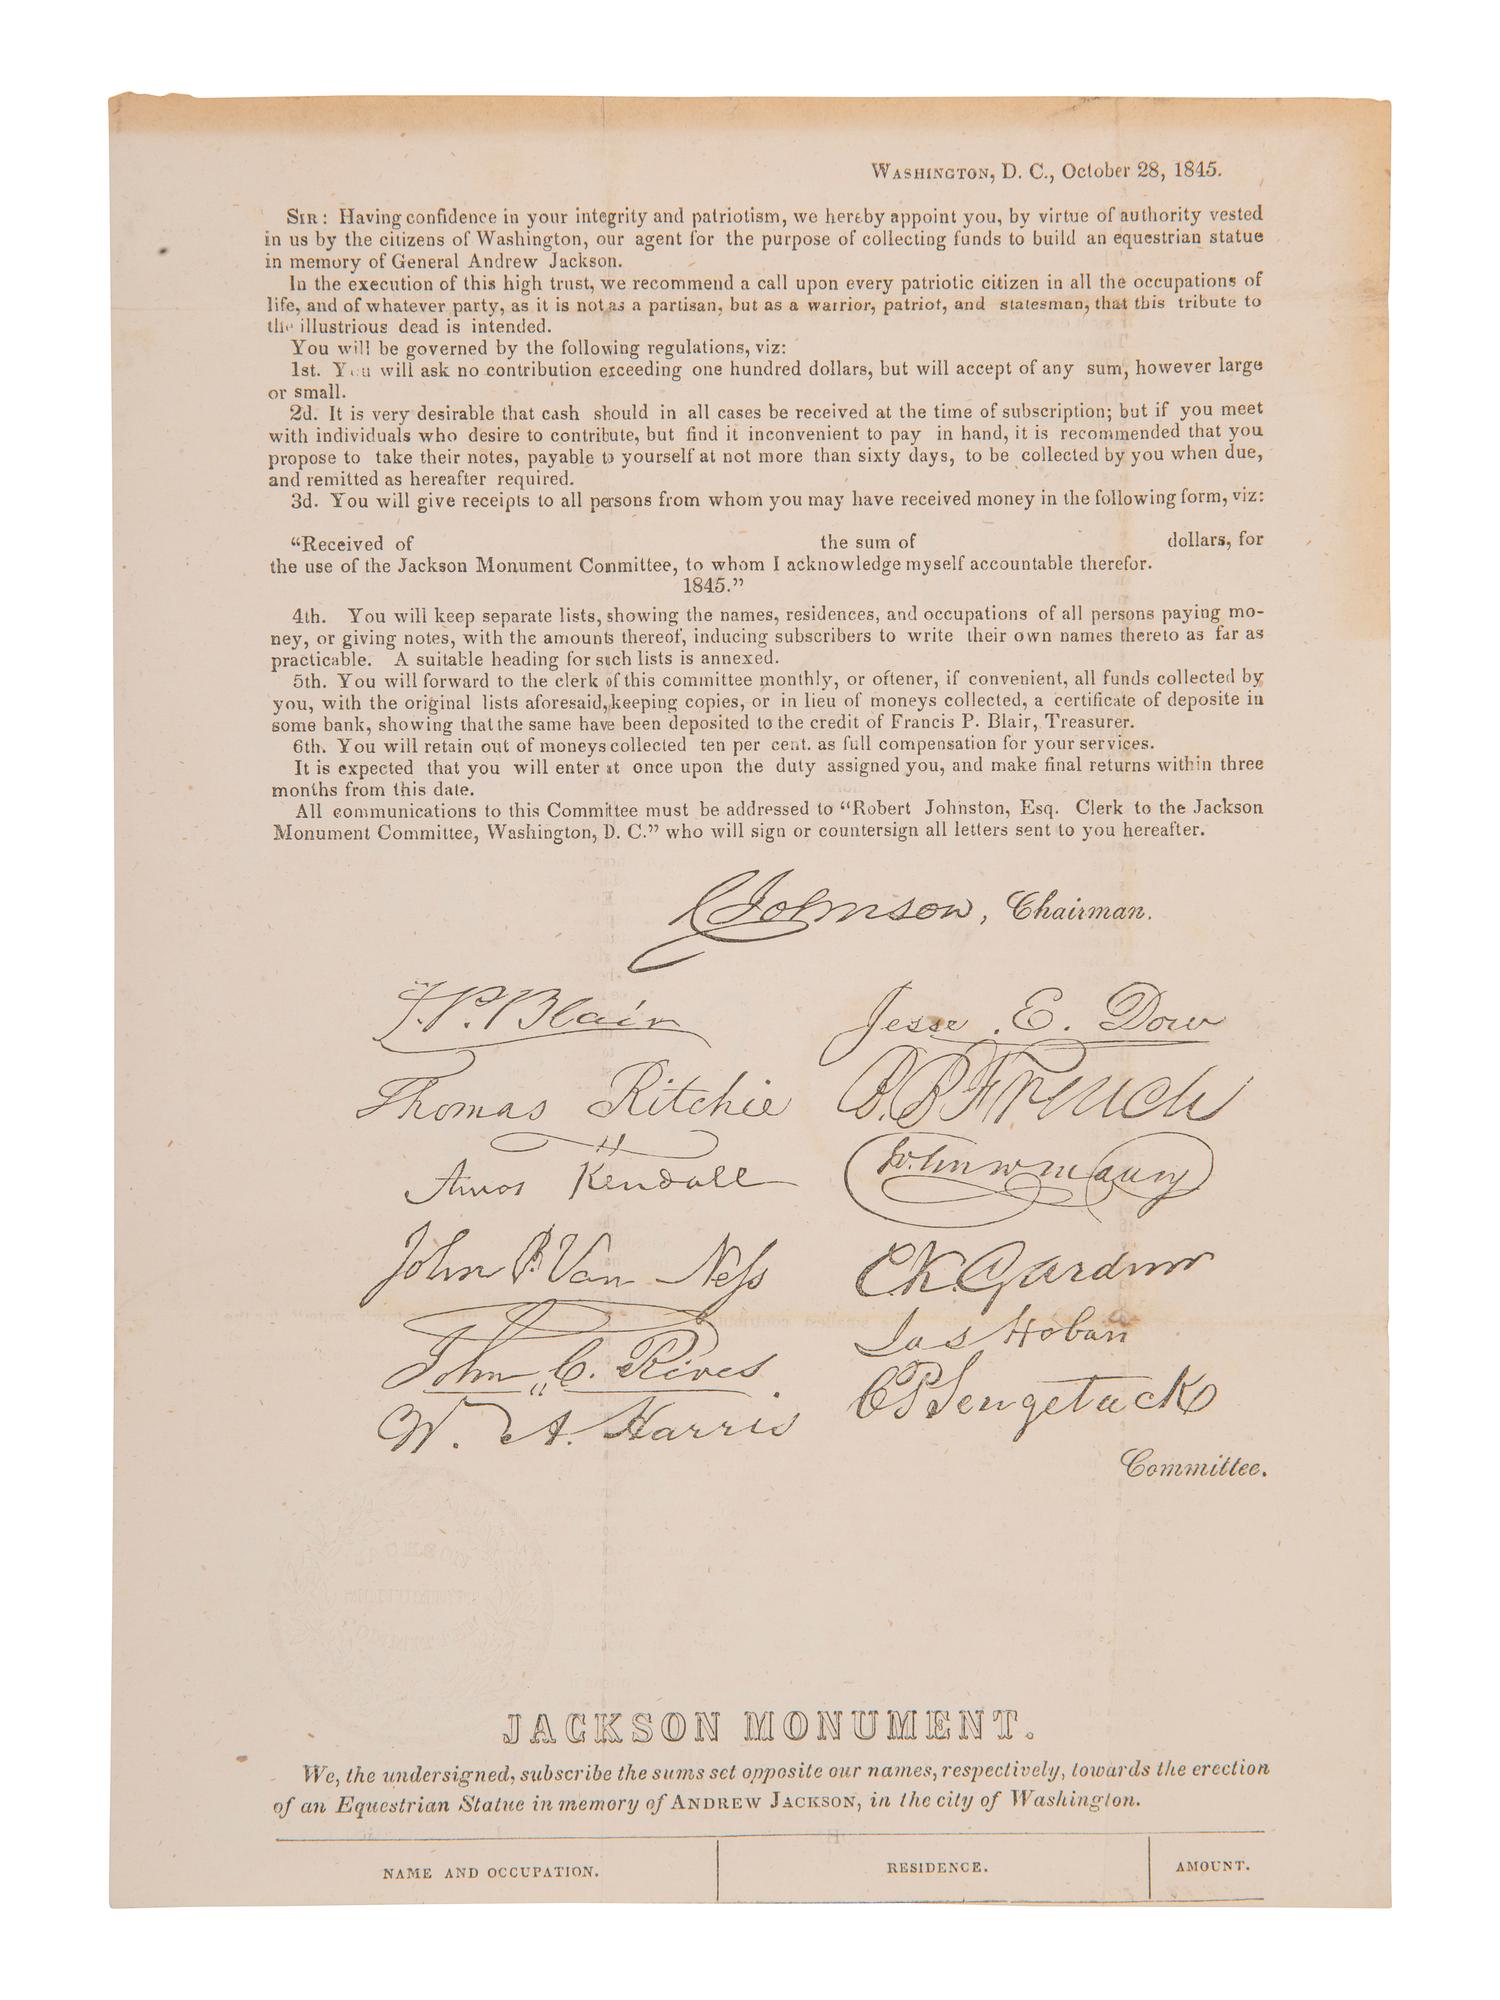 WASHINGTON, D. C., October 28, 1845.
SIR: Having confidence in your integrity and patriotism, we hereby appoint you, by virtue of authority vested
in us by the citizens of Washington, our agent for the purpose of collecting funds to build an equestrian statue
in memory of General Andrew Jackson.
In the execution of this high trust, we recommend a call upon every patriotic citizen in all the occupations of
life, and of whatever party, as it is not as a partisan, but as a warrior, patriot, and statesman, that this tribute to
the illustrious dead is intended.
You will be governed by the following regulations, viz:
1st. You will ask no contribution exceeding one hundred dollars, but will accept of any sum, however large
or small.
2d. It is very desirable that cash should in all cases be received at the time of subscription; but if you meet
with individuals who desire to contribute, but find it inconvenient to pay in hand, it is recommended that you
propose to take their notes, payable to yourself at not more than sixty days, to be collected by you when due,
and remitted as hereafter required.
3d. You will give receipts to all persons from whom you may have received money in the following form, viz:
"Received of the sum of dollars, for
the use of the Jackson Monument Committee, to whom I acknowledge myself accountable therefor.
1845."
4th. You will keep separate lists, showing the names, residences, and occupations of all persons paying mo-
ney, or giving notes, with the amounts thereof, inducing subscribers to write their own names thereto as far as
practicable. A suitable heading for such lists is annexed.
5th. You will forward to the clerk of this committee monthly, or oftener, if convenient, all funds collected by
you, with the original lists aforesaid, keeping copies, or in lieu of moneys collected, a certificate of deposite in
some bank, showing that the same have been deposited to the credit of Francis P. Blair, Treasurer.
6th. You will retain out of moneys collected ten per cent. as full compensation for your services.
It is expected that you will enter at once upon the duty assigned you, and make final returns within three
months from this date.
All communications to this Committee must be addressed to "Robert Johnston, Esq. Clerk to the Jackson
Monument Committee, Washington, D. C." who will sign or countersign all letters sent to you hereafter.
C Johnson, Chairman.
F. P. Blair Jesse E. Dow
Thomas Ritchie B. B. French
Amos Kendall John W Maury
John P. Van Ness C. K. Gardner
John C. Rives Jas Hoban
W. A. Harris C P Sengstack
Committee.
JACKSON
MONUMENT
COMMITTEE
JACKSON MONUMENT.
We, the undersigned, subscribe the sums set opposite our names, respectively, towards the erection
of an Equestrian Statue in memory of ANDREW JACKSON, in the city of Washington.
NAME AND OCCUPATION. RESIDENCE. AMOUNT.